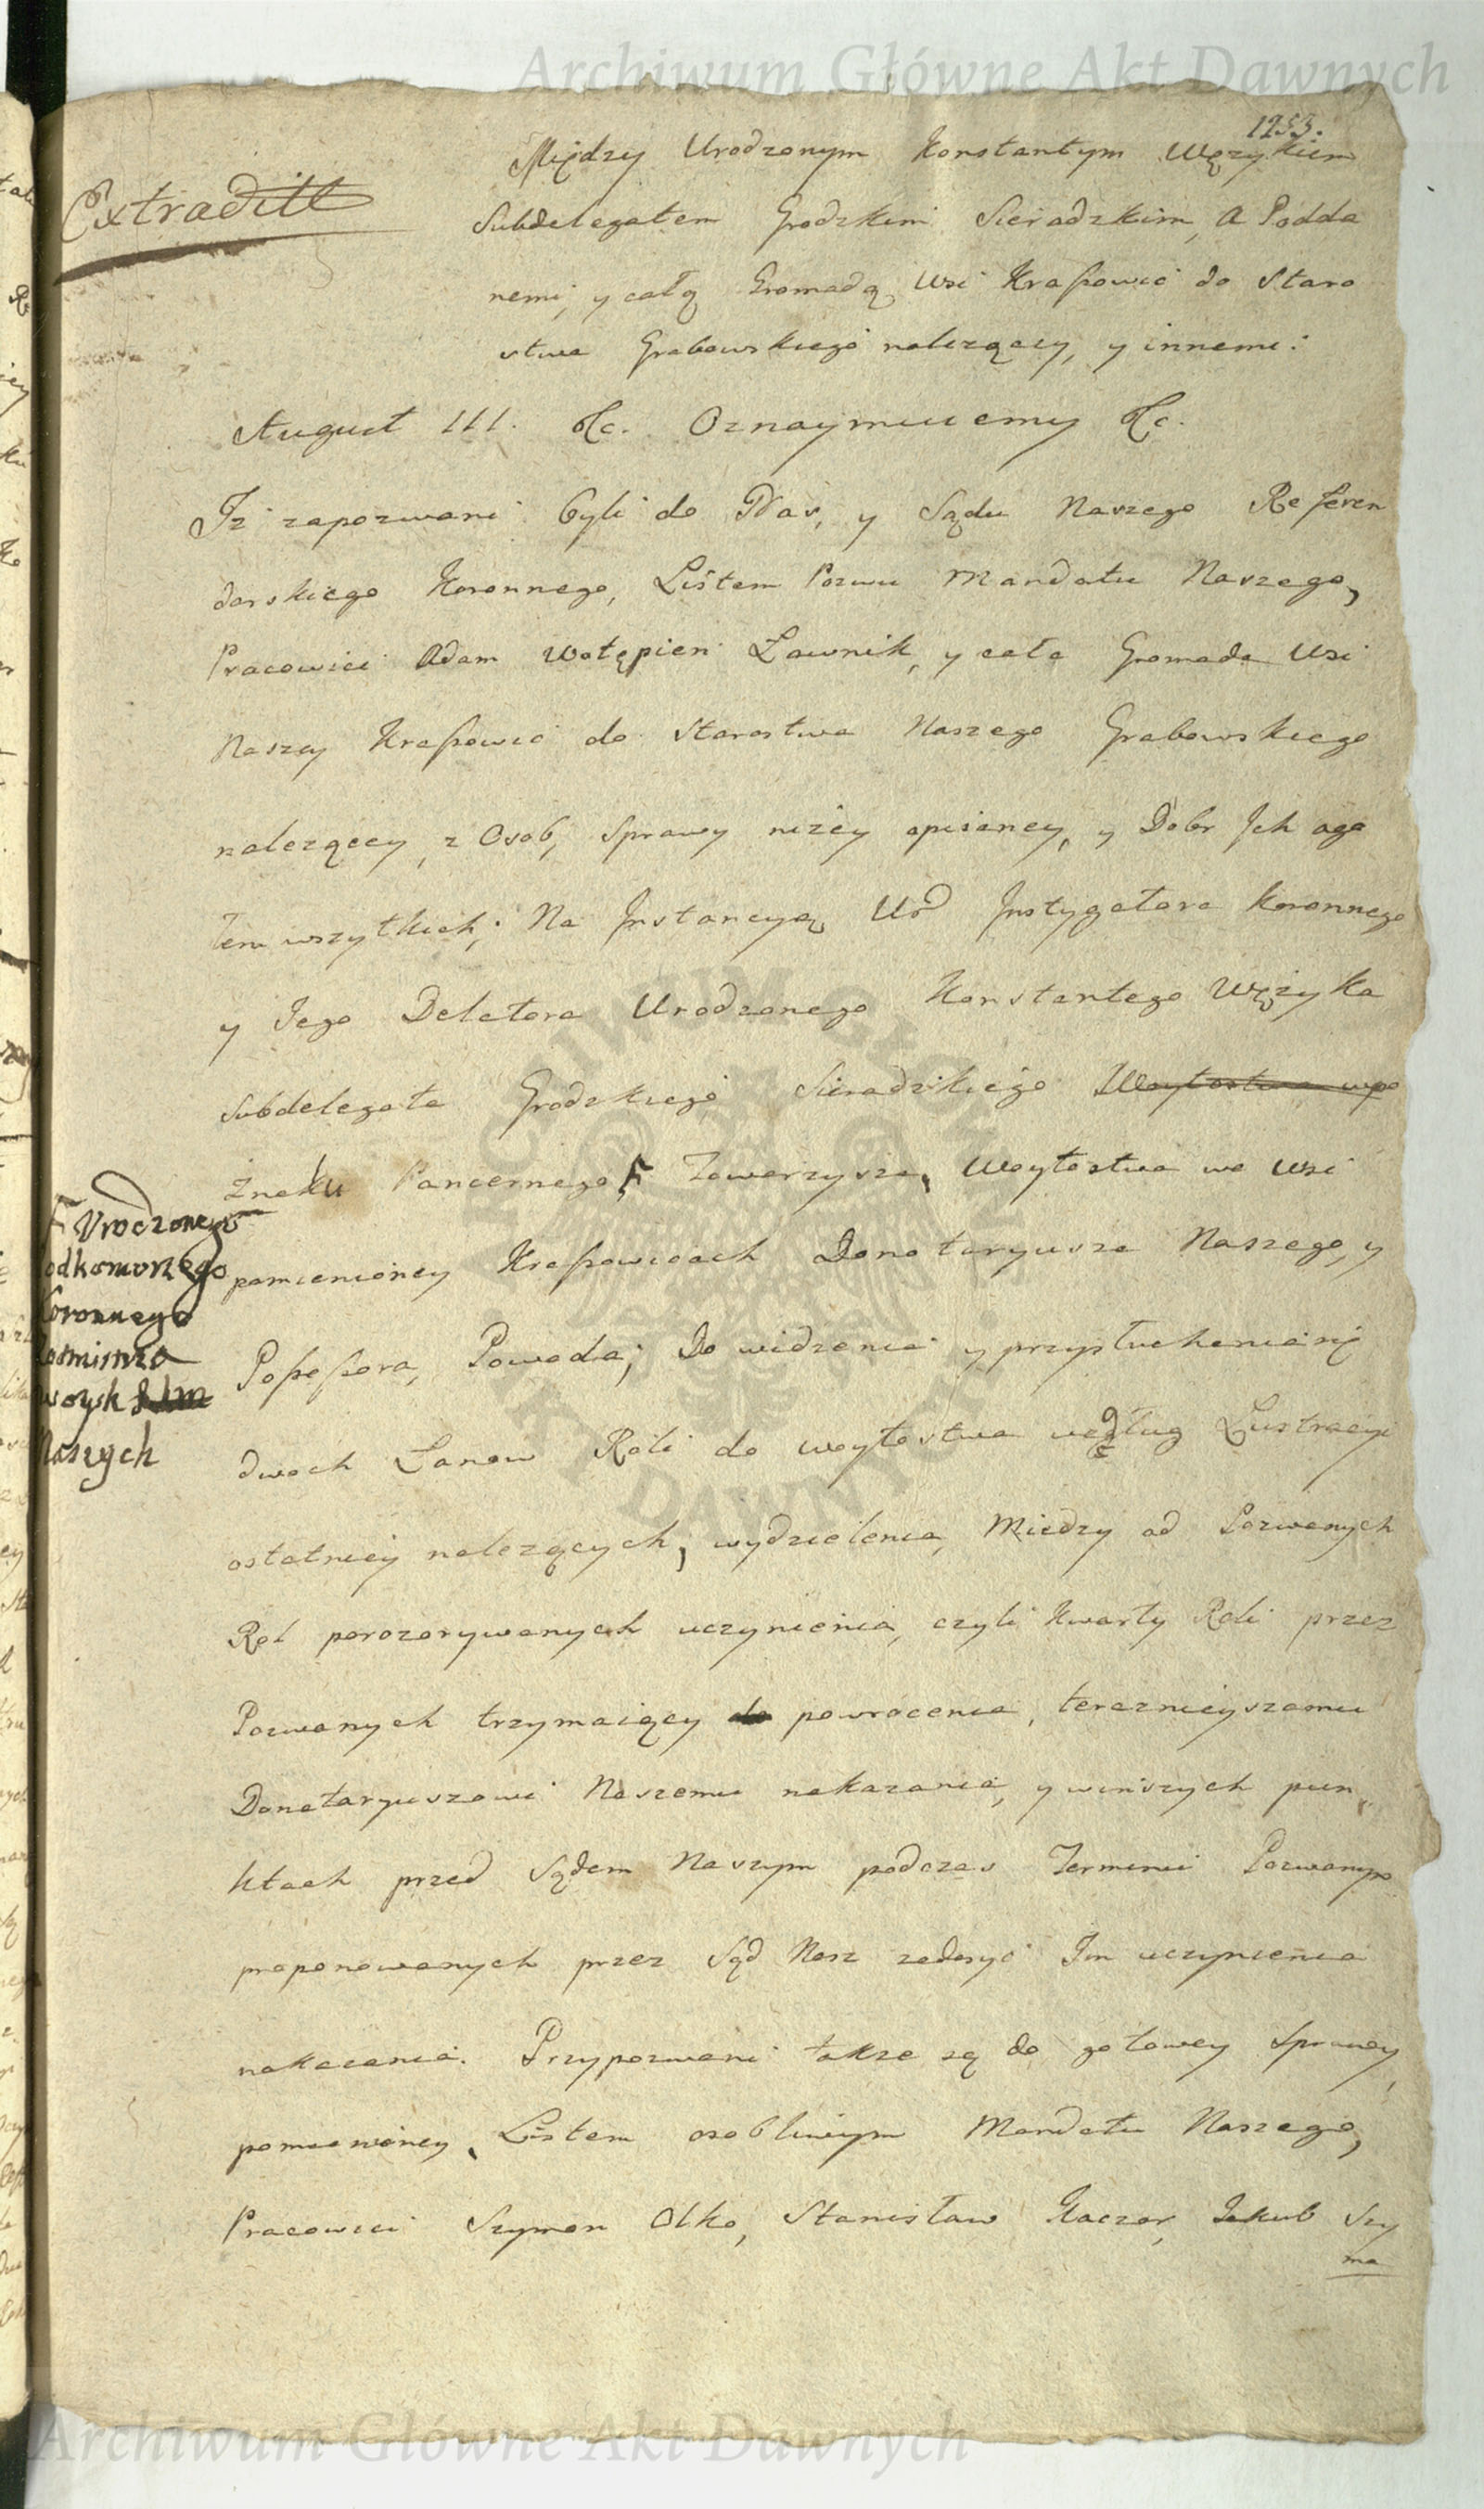 Archiwum Główne Akt Dawnych
1253.
Extraditt
Między Urodzonym Konstantym Wężykiem
Subdelegatem Grodzkim Sieradzkim, a Podda
nemi, y całą Gromadą Wsi Kraszowic do Staro
stwa Grabowskiego należący, y innemi:
August III. &c. Oznaymuiemy &c.
Iż zapozwani byli do Nas, y Sądu Naszego Referen
darskiego Koronnego, Listem Pozwu Mandatu Naszego,
Pracowici Adam Wstępień Ławnik, y cała Gromada Wsi
Naszey Kraszowic do Starostwa Naszego Grabowskiego
należącey, z Osob, Sprawy niżey opisaney, y Dobr Ich ogo
łem wszytkich; Na Instancyą Ur Instygatora Koronnego
y Jego Delatora Urodzonego Konstantego Wężyka
Subdelegata Grodzkiego Sieradzkiego Woytostwa wpo
Znaku Pancernego Towarzysza, Woytostwa we Wsi
Urodzonego
odkomorzego
oronnego
woysk
Naszych
pomienioney Kraszowicach Donataryusza Naszego, y
Possessora, Powoda; Do widzenia y przysłuchenia się
dwoch Łanow Roli do woytostwa według Lustracyi
ostatniey należących, wydzielenia, Miedzy od Pozwanych
Rol porozorywanych uczynienia, czyli Kwarty Roli przez
Pozwanych trzymaiący do powrocenia, teraznieyszemu
Donataryuszowi Naszemu nakazania, y w inszych pun
ktach przed Sądem Naszym podczas Terminu Pozwanym
proponowanych przez Sąd Nasz zadosyć Im uczynienia
nakazania. Przypozwani także są do gotowey Sprawy
pomienioney, Listem osobliwym Mandatu Naszego,
Pracowici Szymon Olko, Stanisław Kaczor, Jakub Szy
ma
Archiwum Główne Akt Dawnych